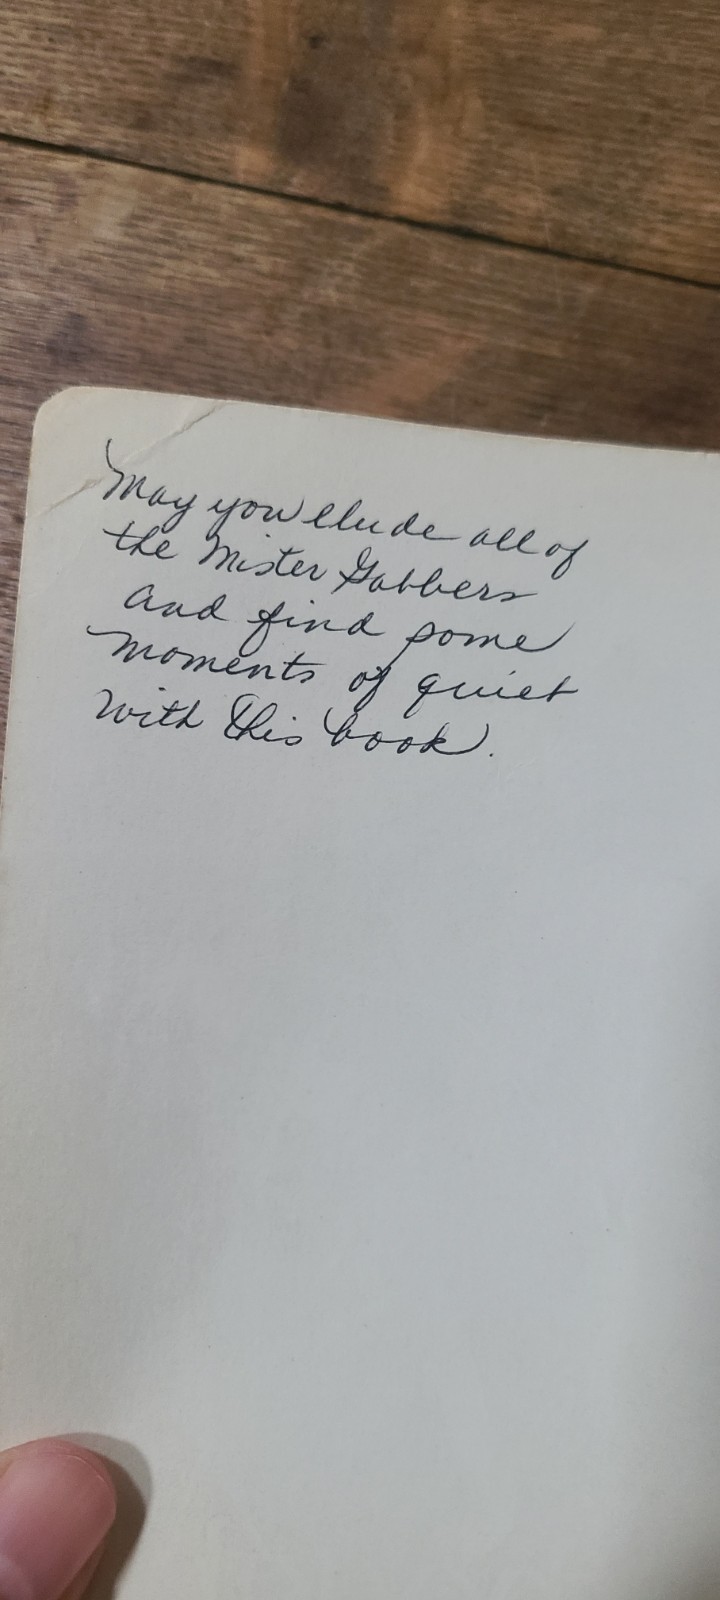 May you elude all of
the Mister Gabbers
and find some
moments of quiet
with this book.